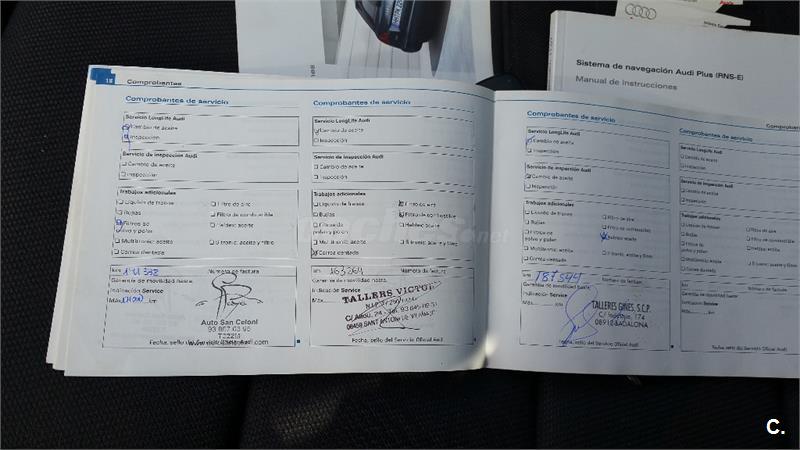 Sistema de navegación Audi Plus (RNS-E)
Manual de instrucciones
18 Comprobantes
Comprobantes de servicio
Servicio LongLife Audi
Cambio de aceite
Inspección
Servicio de inspección Audi
Cambio de aceite
Inspección
Trabajos adicionales
Líquido de frenos
Filtro de aire
Bujías
Filtro de combustible
Filtro de polvo y polen
Haldex: aceite
Multitronic: aceite
S tronic: aceite y filtro
Correa dentada
km
Número de factura
Garantía de movilidad hasta
Indicación Service
Máx. km
Auto San Celoni
Fecha, sello del Servicio Oficial Audi
Comprobantes de servicio
Servicio LongLife Audi
Cambio de aceite
Inspección
Servicio de inspección Audi
Cambio de aceite
Inspección
Trabajos adicionales
Líquido de frenos
Filtro de aire
Bujías
Filtro de combustible
Filtro de polvo y polen
Haldex: aceite
Multitronic: aceite
S tronic: aceite y filtro
Correa dentada
km 163264
Número de factura
Garantía de movilidad hasta
Indicación Service
Máx.
TALLERS VICTOR
Fecha, sello del Servicio Oficial Audi
Comprobantes de servicio
Servicio LongLife Audi
Cambio de aceite
Inspección
Servicio de inspección Audi
Cambio de aceite
Inspección
Trabajos adicionales
Líquido de frenos
Filtro de aire
Bujías
Filtro de combustible
Filtro de polvo y polen
Haldex: aceite
Multitronic: aceite
S tronic: aceite y filtro
Correa dentada
km 187544
Número de factura
Garantía de movilidad hasta
Indicación Service
Máx. km
TALLERES GINES, S.C.P.
174
08912 BADALONA
Fecha, sello del Servicio Oficial Audi
Comprobantes de servicio
Servicio LongLife Audi
Cambio de aceite
Inspección
Servicio de inspección Audi
Cambio de aceite
Inspección
Trabajos adicionales
Líquido de frenos
Bujías
Filtro de polvo y polen
Multitronic: aceite
Correa dentada
km
Número de factura
Garantía de movilidad hasta
Indicación Service
Máx. km
Fecha, sello del Servicio Oficial Audi
C.